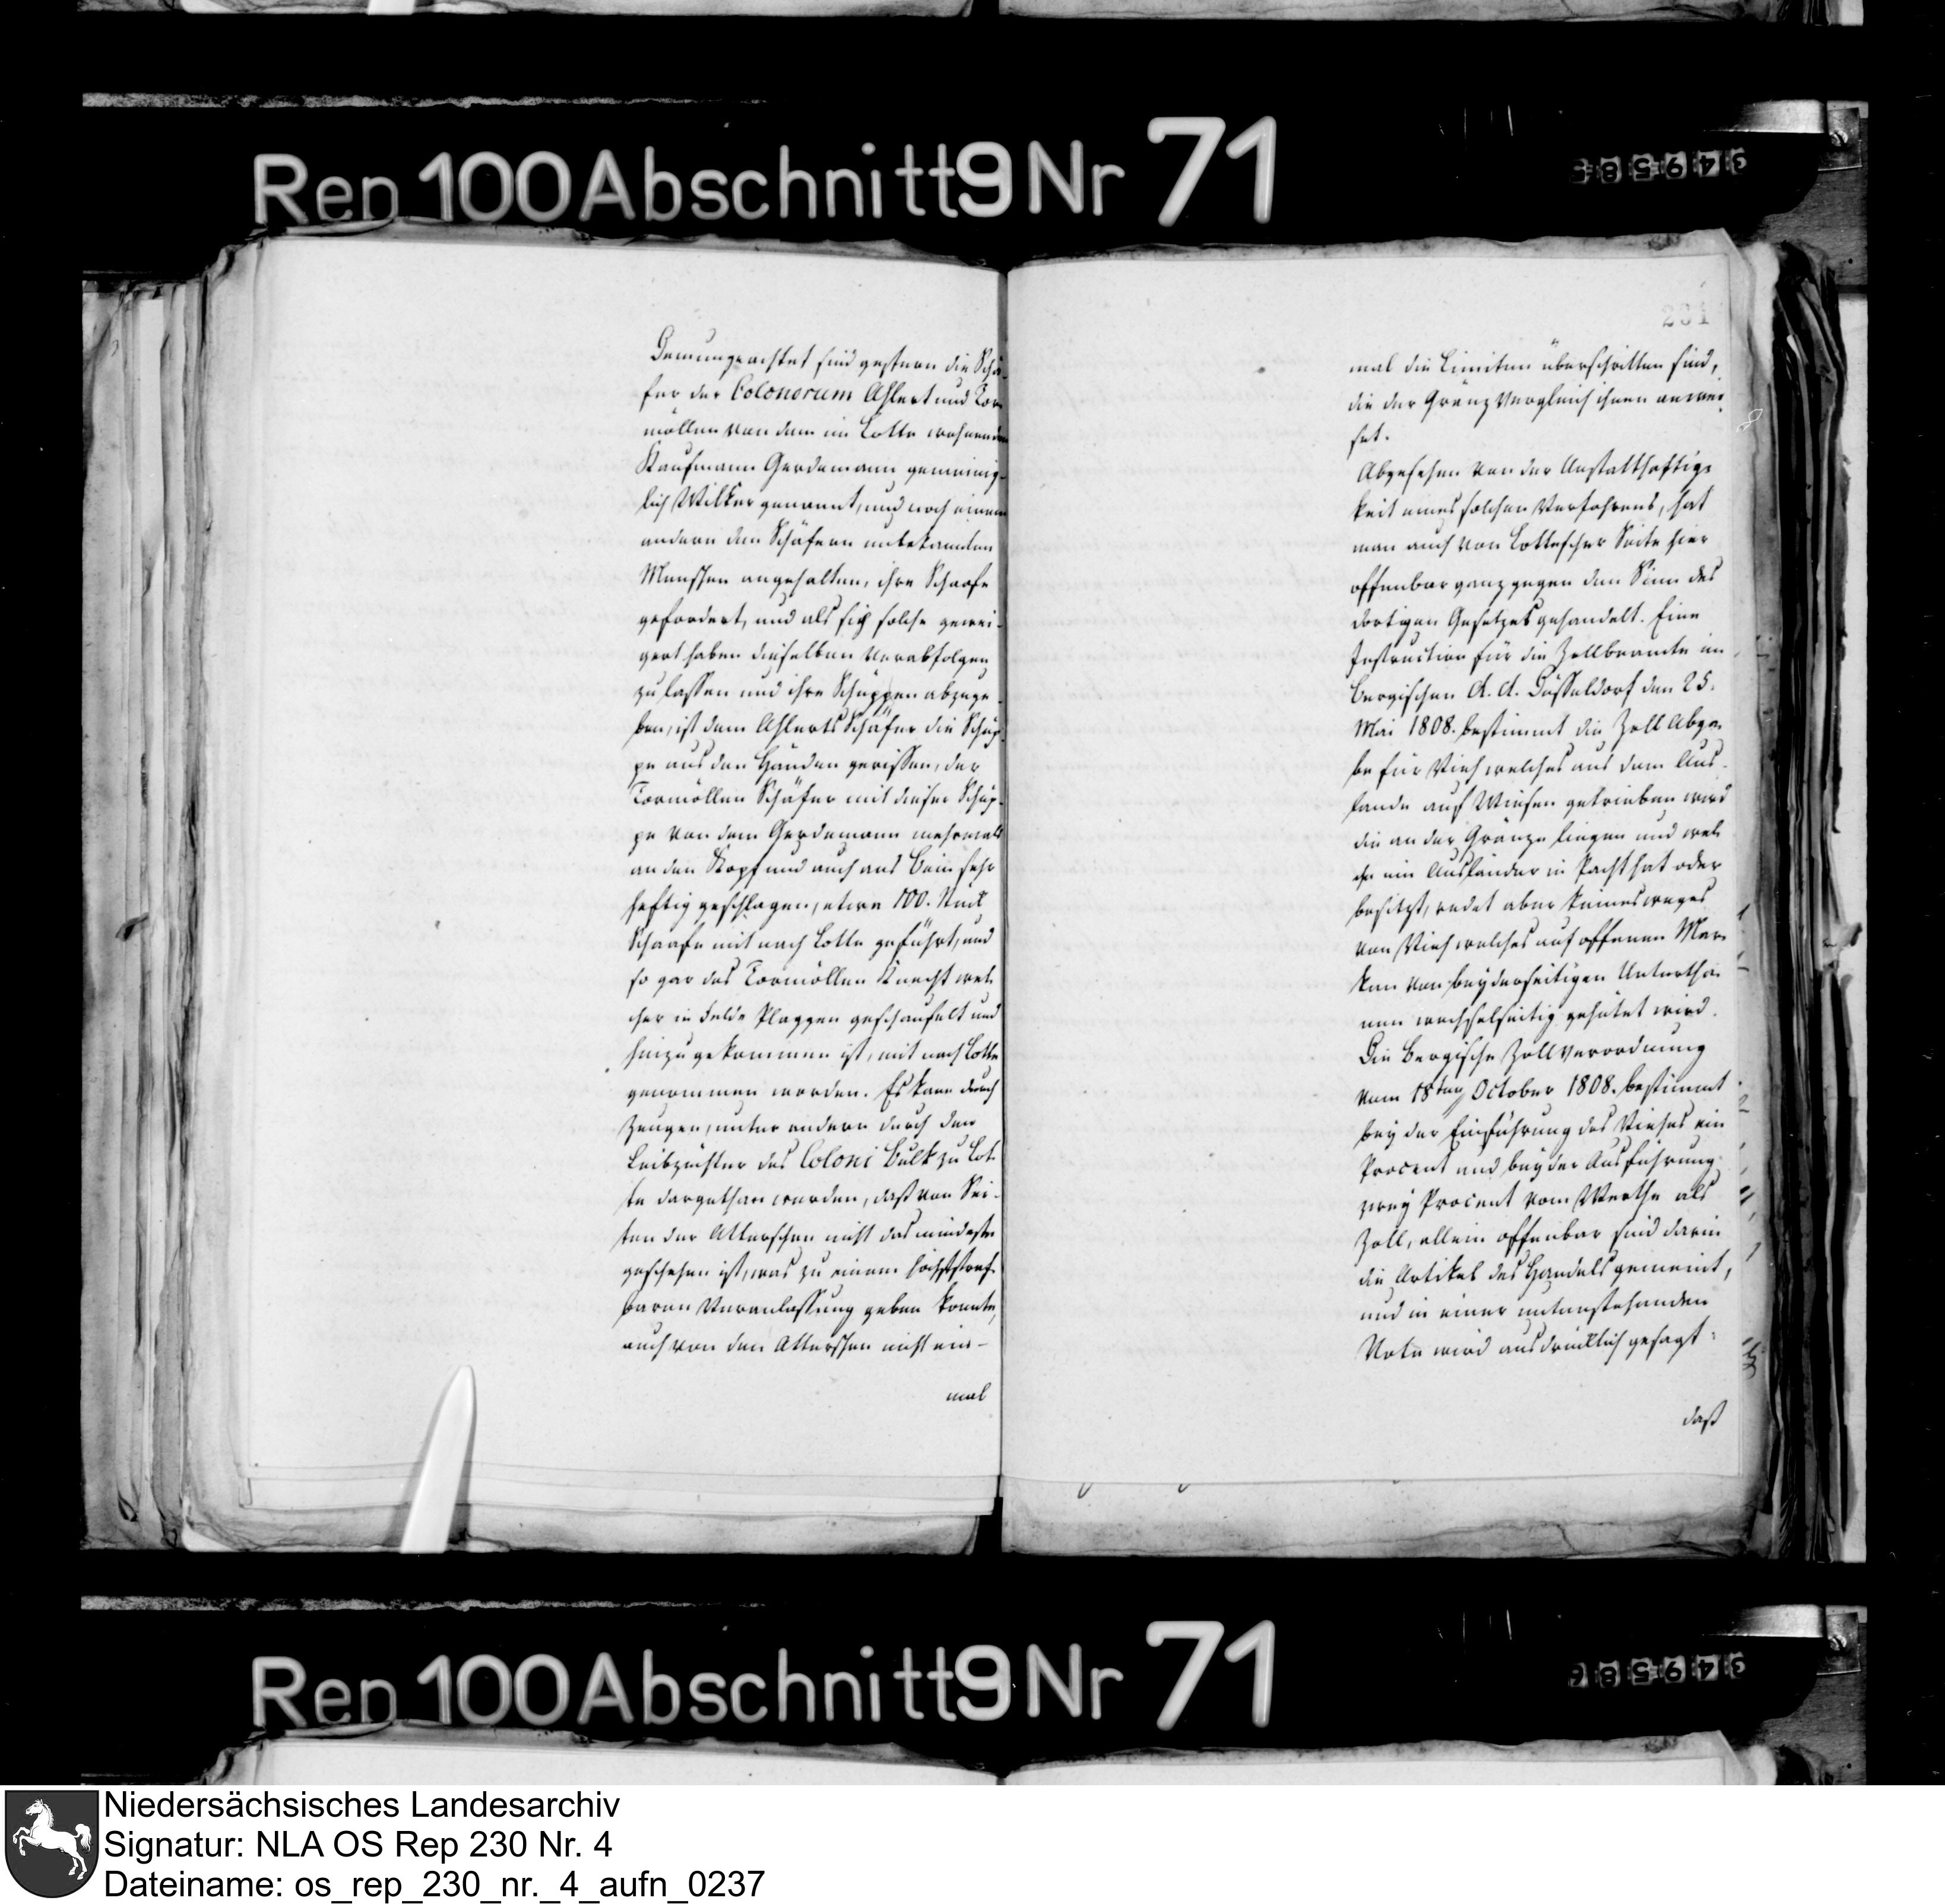 Rep 100 Abschnitt 9 Nr 71
34958
231
Demungeachtet sind gestern die Schä-
fer der Colonorum Ahlert und Tor-
möllen von dem in Lotte wohnenden
Kaufmann Gerdemann gemeinig-
lich Wilker genannt, und noch einem
andern den Schäfern unbekannten
Menschen angehalten, ihre Schaafe
gefordert, und als sich solche gewei-
gert haben dieselben verabfolgen
zu lassen und ihre Schuppen abzuge-
ben, ist dem Ahlerts Schäfer die Schup-
pe aus den Händen gerissen, der
Tormöllen Schäfer mit dieser Schup-
pe von dem Gerdemann mehrmals
an den Kopf und auch ans Bein sehr
heftig geschlagen, etwa 100. Stück
Schaafe mit nach Lotte geführt, und
so gar des Tormöllen Knecht wel-
cher im Felde Plaggen geschaufelt und
hinzu gekommen ist, mit nach Lotte
genommen worden. Es kann durch
Zeugen, unter andern durch den
Leibzüchter des Coloni Bulk zu Lot-
te dargethan werden, daß von Sei-
ten der Atterschen nicht das mindeste
geschehen ist, was zu einem höchststraf-
baren Veranlassung geben konnte,
auch von den Atterschen nicht ein-
mal
mal die Limiten überschritten sind,
die der Gränz Vergleich ihnen anwei-
set.
Abgesehen von der Unstatthaftig-
keit eines solchen Verfahrens, hat
man auch von Lottescher Seite hier
offenbar ganz gegen den Sinn des
dortigen Gesetzes gehandelt. Eine
Instruction für die Zollbeamte im
Bergischen d. d. Düsseldorf den 25.
Mai 1808. bestimmt die Zoll Abga-
be für Vieh welches aus dem Aus-
lande auf Wiesen getrieben wird
die an der Gränze liegen und wel-
che ein Ausländer in Pacht hat oder
besitzt, redet aber keinesweges
von Vieh welches auf offenen Mar-
ken von beyderseitigen Untertha-
nen wechselseitig gehütet wird.
Die Bergische Zollverordnung
vom 18ten October 1808. bestimmt
bey der Einführung des Viehes ein
Procent und bey der Ausführung
zwey Procent vom Werthe als
Zoll, allein offenbar sind darin
die Artikel des Handels gemeint,
und in einer untenstehenden
Note wird ausdrücklich gesagt:
daß
Rep 100 Abschnitt 9 Nr 71
34958
Niedersächsisches Landesarchiv
Signatur: NLA OS Rep 230 Nr. 4
Dateiname: os_rep_230_nr._4_aufn_0237